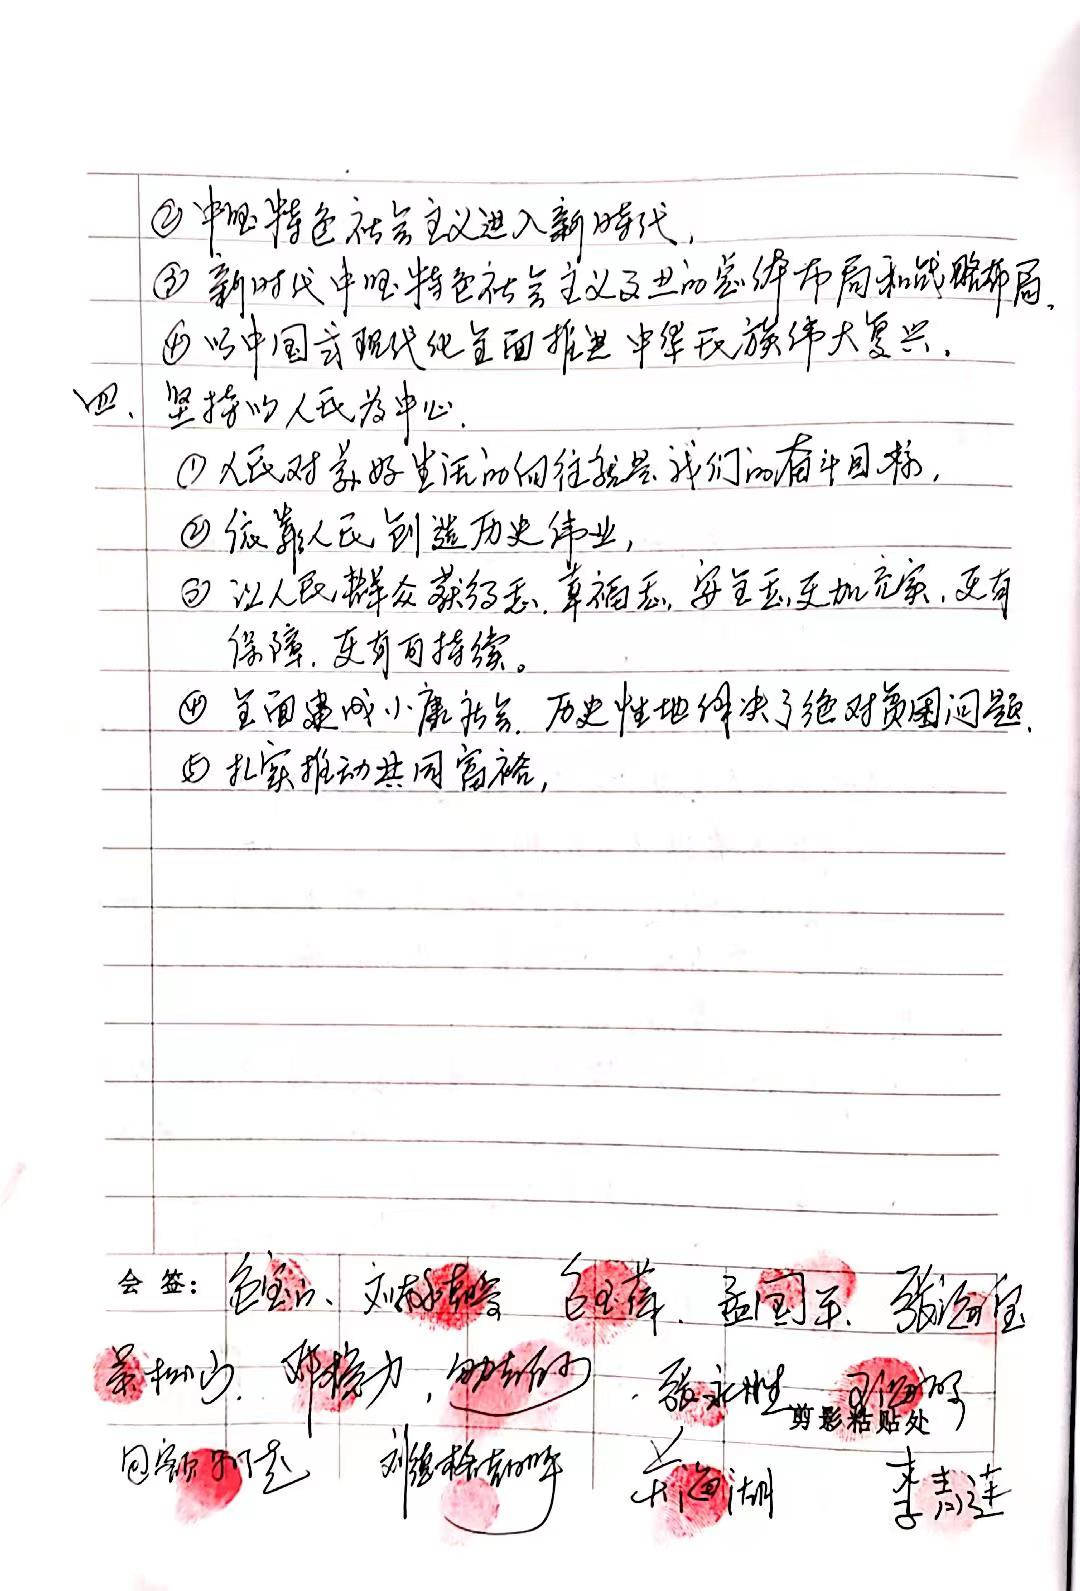 ②中国特色社会主义进入新时代,
③新时代中国特色社会主义事业的总体布局和战略布局.
④以中国式现代化全面推进中华民族伟大复兴.
四、坚持以人民为中心.
①人民对美好生活的向往就是我们的奋斗目标,
②依靠人民创造历史伟业,
③让人民群众获得感、幸福感、安全感更加充实、更有
保障、更有可持续。
④全面建成小康社会、历史性地解决了绝对贫困问题.
⑤扎实推动共同富裕,
会 签: 白玉萍、孟国平、张海宝
张永胜
剪影粘贴处
吴海湖 李青莲